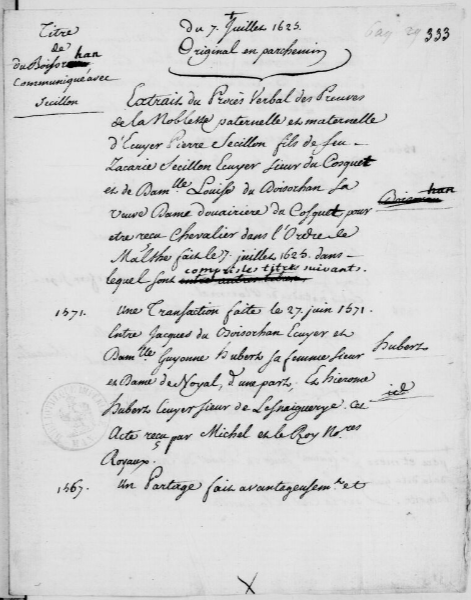 du 7. Juillet 1623.
Original en parchemin
333
Titre
de
du Boisorhan
Communiqué avec
Secillon
Extrait du Procès Verbal des Preuves
de la Noblesse paternelle et maternelle
d'Ecuyer Pierre Secillon fils de feu
Zacarie Secillon Ecuyer sieur du Cosquet
et de Dam.lle Louise du Boisorhan sa
veuve Dame douairiere du Cosquet pour
han
etre reçu Chevalier dans l'Ordre de
Malthe fait le 7. juillet 1623. dans
lequel sont compris les titres suivants.
1571. Une Transaction faite le 27. juin 1571.
Entre Jacques du Boisorhan Ecuyer et
Dam.lle Guyonne hubert sa femme sieur
hubert
et Dame de Noyal, d'une part, Et hierome
hubert Ecuyer sieur de Lesnaiguerye. Cet
id
Acte reçu par Michel et le Roy No.res
Royaux.
1567. Un Partage fait avantageusem.t et
X